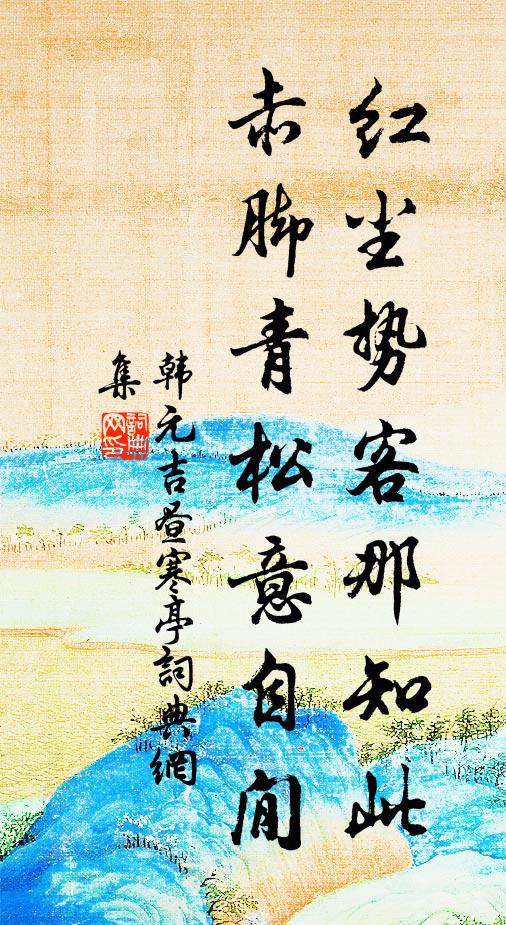 红尘势客那知此
赤脚青松意自闲
韩元吉昼寒亭詞典網
集
詞典